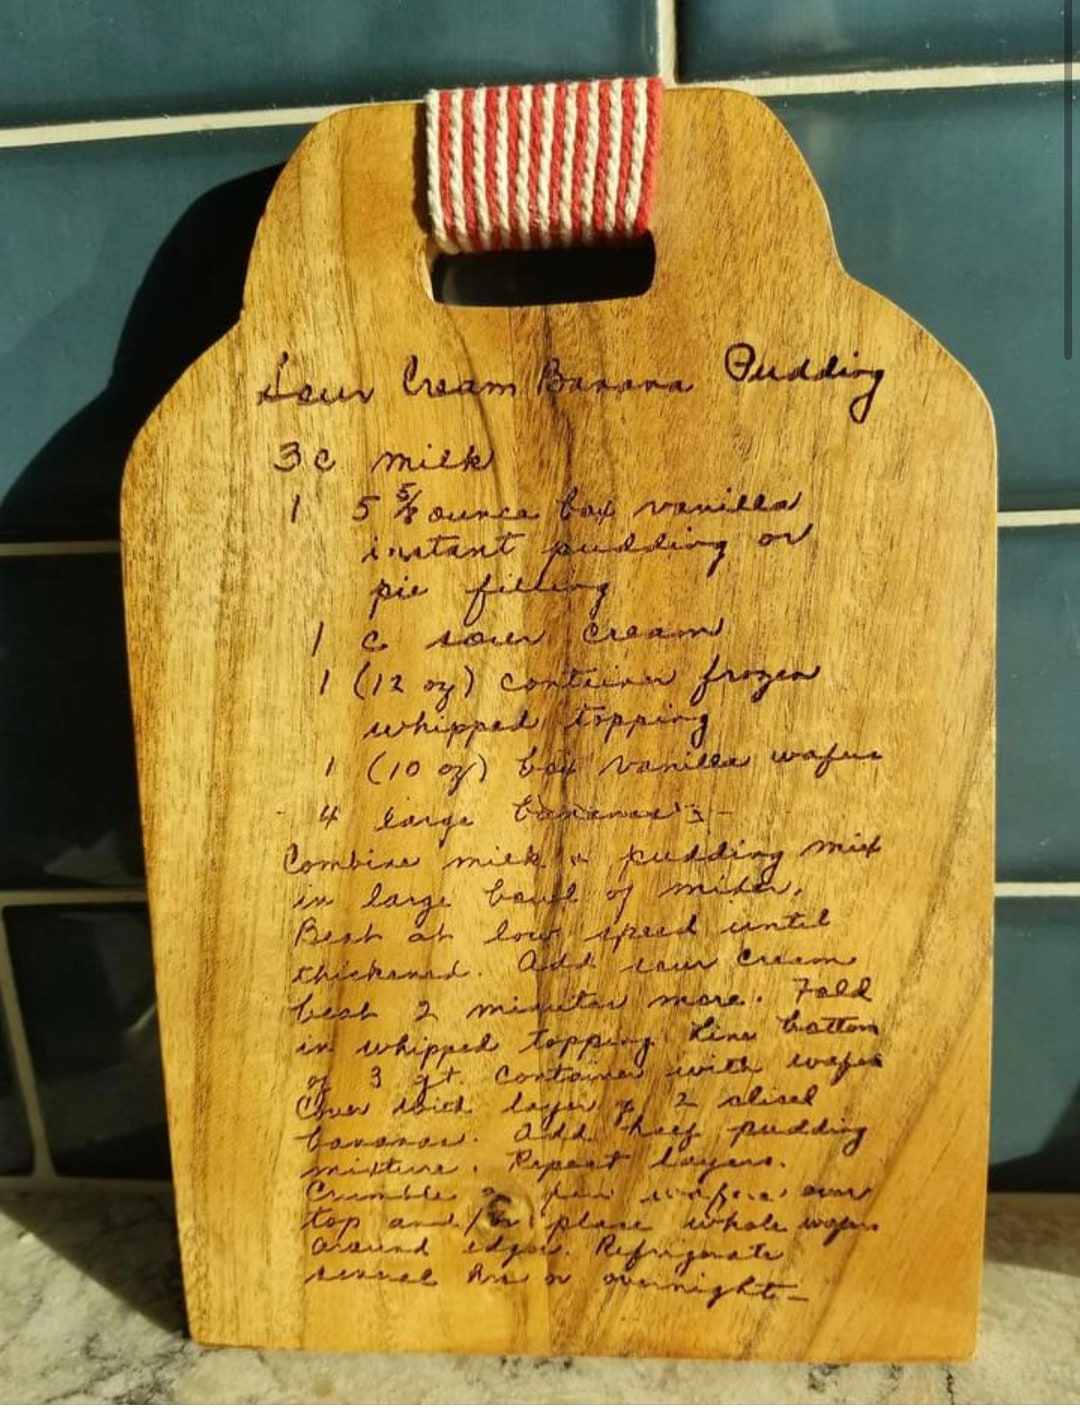 Sour Cream Banana Pudding
3 c milk
1 5 5/8 ounce box vanilla
instant pudding or
pie filling
1 c sour cream
1 (12 oz) container frozen
whipped topping
1 (10 oz) box vanilla wafers
4 large bananas -
Combine milk & pudding mix
in large bowl of mixer.
Beat at low speed until
thickened. Add sour cream
beat 2 minutes more. Fold
in whipped topping. Line bottom
of 3 qt. container with wafers
Cover with layer of 2 sliced
bananas. Add half pudding
mixture. Repeat layers.
Crumble a few wafers over
top and/or place whole wafers
around edges. Refrigerate
several hrs or overnight. -